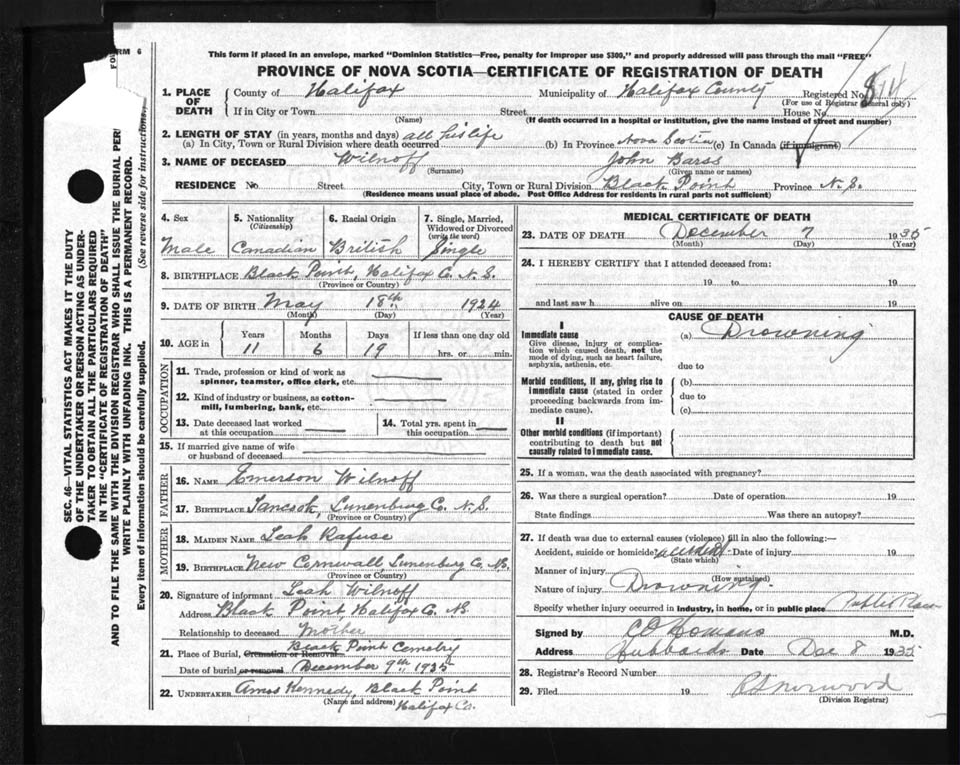 FORM 6
This form if placed in an envelope, marked "Dominion Statistics—Free, penalty for improper use $300," and properly addressed will pass through the mail "FREE"
PROVINCE OF NOVA SCOTIA—CERTIFICATE OF REGISTRATION OF DEATH
SEC. 46—VITAL STATISTICS ACT MAKES IT THE DUTY
OF THE UNDERTAKER OR PERSON ACTING AS UNDER-
TAKER TO OBTAIN ALL THE PARTICULARS REQUIRED
IN THE "CERTIFICATE OF REGISTRATION OF DEATH"
AND TO FILE THE SAME WITH THE DIVISION REGISTRAR WHO SHALL ISSUE THE BURIAL PER
WRITE PLAINLY WITH UNFADING INK. THIS IS A PERMANENT RECORD.
Every item of information should be carefully supplied. (See reverse side for instructions.
1. PLACE OF DEATH County of Halifax Municipality of Halifax County Registered No.
(For use of Registrar General only)
If in City or Town Street House No.
(Name) (If death occurred in a hospital or institution, give the name instead of street and number)
2. LENGTH OF STAY (in years, months and days) all his life
(a) In City, Town or Rural Division where death occurred (b) In Province Nova Scotia (c) In Canada (if immigrant)
3. NAME OF DECEASED Wilnoff John Barss
(Surname) (Given name or names)
RESIDENCE No. Street City, Town or Rural Division Black Point Province N.S.
(Residence means usual place of abode. Post Office Address for residents in rural parts not sufficient)
4. Sex Male
5. Nationality (Citizenship) Canadian
6. Racial Origin British
7. Single, Married, Widowed or Divorced (write the word) Single
8. BIRTHPLACE Black Point, Halifax Co. N.S.
(Province or Country)
9. DATE OF BIRTH May 18th 1924
(Month) (Day) (Year)
10. AGE in Years Months Days If less than one day old
11 6 19 hrs. or min.
OCCUPATION
11. Trade, profession or kind of work as
spinner, teamster, office clerk, etc.
12. Kind of industry or business, as cotton-
mill, lumbering, bank, etc.
13. Date deceased last worked at this occupation
14. Total yrs. spent in this occupation
15. If married give name of wife
or husband of deceased
FATHER
16. NAME Emerson Wilnoff
17. BIRTHPLACE Tancook, Lunenburg Co. N.S.
(Province or Country)
MOTHER
18. MAIDEN NAME Leah Rafuse
19. BIRTHPLACE New Cornwall, Lunenburg Co. N.S.
(Province or Country)
20. Signature of informant Leah Wilnoff
Address Black Point, Halifax Co. N.S.
Relationship to deceased Mother
21. Place of Burial, Cremation or Removal Black Point Cemetry
Date of burial or removal December 9th 1935
22. UNDERTAKER Amos Kennedy, Black Point
(Name and address) Halifax Co.
MEDICAL CERTIFICATE OF DEATH
23. DATE OF DEATH December 7 1935
(Month) (Day) (Year)
24. I HEREBY CERTIFY that I attended deceased from:
19 to 19
and last saw h alive on 19
CAUSE OF DEATH
I
Immediate cause (a) Drowning
Give disease, injury or complica-
tion which caused death, not the
mode of dying, such as heart failure,
asphyxia, asthenia, etc.
due to
Morbid conditions, if any, giving rise to (b)
immediate cause (stated in order due to
proceeding backwards from im- (c)
mediate cause).
II
Other morbid conditions (if important)
contributing to death but not
causally related to immediate cause.
25. If a woman, was the death associated with pregnancy?
26. Was there a surgical operation? Date of operation 19
State findings Was there an autopsy?
27. If death was due to external causes (violence) fill in also the following:—
Accident, suicide or homicide? accident Date of injury 19
(State which)
Manner of injury
(How sustained)
Nature of injury Drowning
Specify whether injury occurred in industry, in home, or in public place Public Place
Signed by M.D.
Address Hubbards Date Dec 8 1935
28. Registrar's Record Number
29. Filed 19
(Division Registrar)